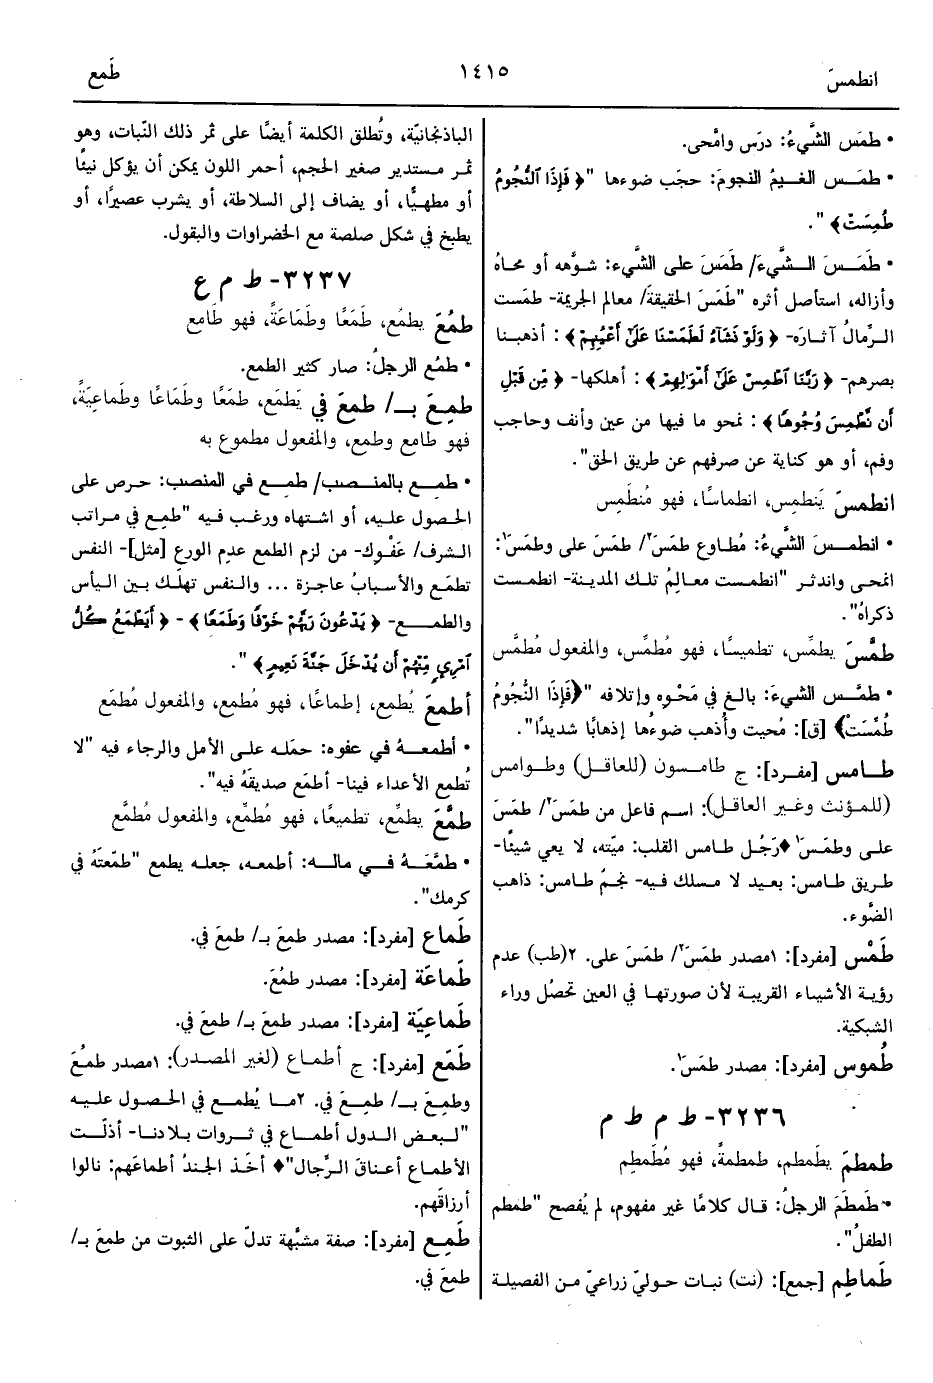 انطمسَ
١٤١٥
طَمع
• طمَس الشَّيءُ: درَس وامَّحى.
• طمَـس الغـيمُ النجومَ: حجَب ضوءها "﴿ فَإِذَا ٱلنُّجُومُ
طُمِسَتْ﴾ ".
• طَمَـسَ الـشَّيءَ/ طَمَسَ على الشَّيء: شوَّهه أو محاهُ
وأزاله، استأصل أثره "طَمَسَ الحقيقةَ/ معالم الجريمة- طمَست
الـرِّمالُ آثـارَه- ﴿ وَلَوْ نَشَآءُ لَطَمَسْنَا عَلَىٰٓ أَعْيُنِهِمْ ﴾ : أذهبـنا
بصرهم- ﴿ رَبَّنَا ٱطْمِسْ عَلَىٰٓ أَمْوَٰلِهِمْ ﴾ : أهلكها- ﴿ مِّن قَبْلِ
أَن نَّطْمِسَ وُجُوهًا ﴾ : نمحو ما فيها من عين وأنف وحاجب
وفم، أو هو كناية عن صرفهم عن طريق الحق".
انطمسَ يَنطمِس، انطماسًا، فهو مُنطَمِس
• انطمـسَ الشَّيءُ: مُطاوع طمَسَ٢/ طمَسَ على وطمَسَ١:
انمحى واندثر "انطمست معالمُ تلـك المدينة- انطمـست
ذكراهُ".
طمَّسَ يطمِّس، تطميسًا، فهو مُطمِّس، والمفعول مُطمَّس
• طمَّـس الشيءَ: بالـغ في مَحْوه وإتلافه "﴿فَإِذَا النُّجُومُ
طُمِّسَتْ﴾ [ق]: مُحيت وأُذهب ضوءُها إذهابًا شديدًا".
طـامس [مفـرد]: ج طامـسون (للعاقـل) وطـوامس
(للمؤنث وغـير العاقـل): اسـم فاعل من طمَسَ٢/ طمَسَ
علـى وطمَـس١ ♦رَجُـل طامس القلب: ميّته، لا يعي شيئًا-
طريق طـامس: بعيـد لا مسلك فيـه- نجـمٌ طـامس: ذاهب
الضَّوء.
طَمْس [مفرد]: ١مصدر طمَسَ٢/ طمَسَ على. ٢(طب) عدم
رؤيـة الأشيـاء القريبـة لأن صورتهـا في العين تحصُل وراء
الشبكية.
طُموس [مفرد]: مصدر طمَسَ١.
٣٢٣٦- ط م ط م
طمطمَ يطمطم، طمطمةً، فهو مُطَمطِم
• طَمطَمَ الرجلُ: قـال كلامًا غير مفهوم، لم يُفصح "طمطم
الطفلُ".
طَماطِم [جمع]: (نت) نبـات حوليّ زراعيّ مـن الفـصيلة
الباذنجانيّة، وتُطلق الكلمة أيضًا على ثمر ذلك النَّبات، وهو
ثمـر مـستدير صغير الحجـم، أحمر اللون يمكن أن يؤكل نيئًا
أو مطهيًّـا، أو يضاف إلى السـلاطة، أو يشرب عصيرًا، أو
يطبخ في شكل صلصة مع الخضراوات والبقول.
٣٢٣٧- ط م ع
طمُعَ يطمُع، طَمَعًا وطَمَاعَةً، فهو طَامِع
• طمُع الرجلُ: صار كثير الطمع.
طمِـعَ بــ/ طمِعَ في يَطمَع، طمَعًا وطَمَاعًا وطَماعِيَةً،
فهو طامِع وطمِع، والمفعول مطموع به
• طمِـع بالمنـصب/ طمِـع في المنصب: حـرص على
الحـصول عليـه، أو اشتهاه ورغـب فيـه "طمِع في مـراتب
الـشرف/ عَفْـوِك- من لزم الطمع عدِم الورع [مثل]- النفس
تطمَـع والأسبـابُ عاجـزة ... والنـفس تهلـك بـين اليـأس
والطمـع- ﴿ يَدْعُونَ رَبَّهُمْ خَوْفًا وَطَمَعًا ﴾ - ﴿ أَيَطْمَعُ كُلُّ
ٱمْرِئٍ مِّنْهُمْ أَن يُدْخَلَ جَنَّةَ نَعِيمٍ﴾ ".
أطمعَ يُطمع، إطماعًـا، فهـو مُطمِع، والمفعـول مُطمَع
• أطمعـهُ في عفوه: حمَله علـى الأمـل والرجاء فيه "لا
تُطمع الأعداء فينا- أطمَع صديقَهُ فيه".
طمَّعَ يطمِّع، تطميعًا، فهو مُطمِّع، والمفعول مُطمَّع
• طمَّعَـهُ فـي مالـه: أطمعه، جعله يطمع "طمّعتَهُ في
كرمك".
طَماع [مفرد]: مصدر طمِعَ بـ/ طمِعَ في.
طَماعَة [مفرد]: مصدر طمُعَ.
طَماعِيَة [مفرد]: مصدر طمِعَ بـ/ طمِعَ في.
طَمَع [مفرد]: ج أطمـاع (لغير المـصدر): ١مصدر طمُعَ
وطمِعَ بــ/ طمِـعَ في. ٢مـا يُطمـع في الحـصول عليـه
"لـبعض الـدول أطمـاع في ثـروات بـلادنـا- أذلّـت
الأطمـاع أعنـاق الـرِّجال"♦ أخَـذ الجنـدُ أطماعَهم: نالوا
أرزاقَهم.
طَمِـع [مفرد]: صفة مشبَّهة تدلّ على الثبوت من طمِعَ بـ/
طمِعَ في.